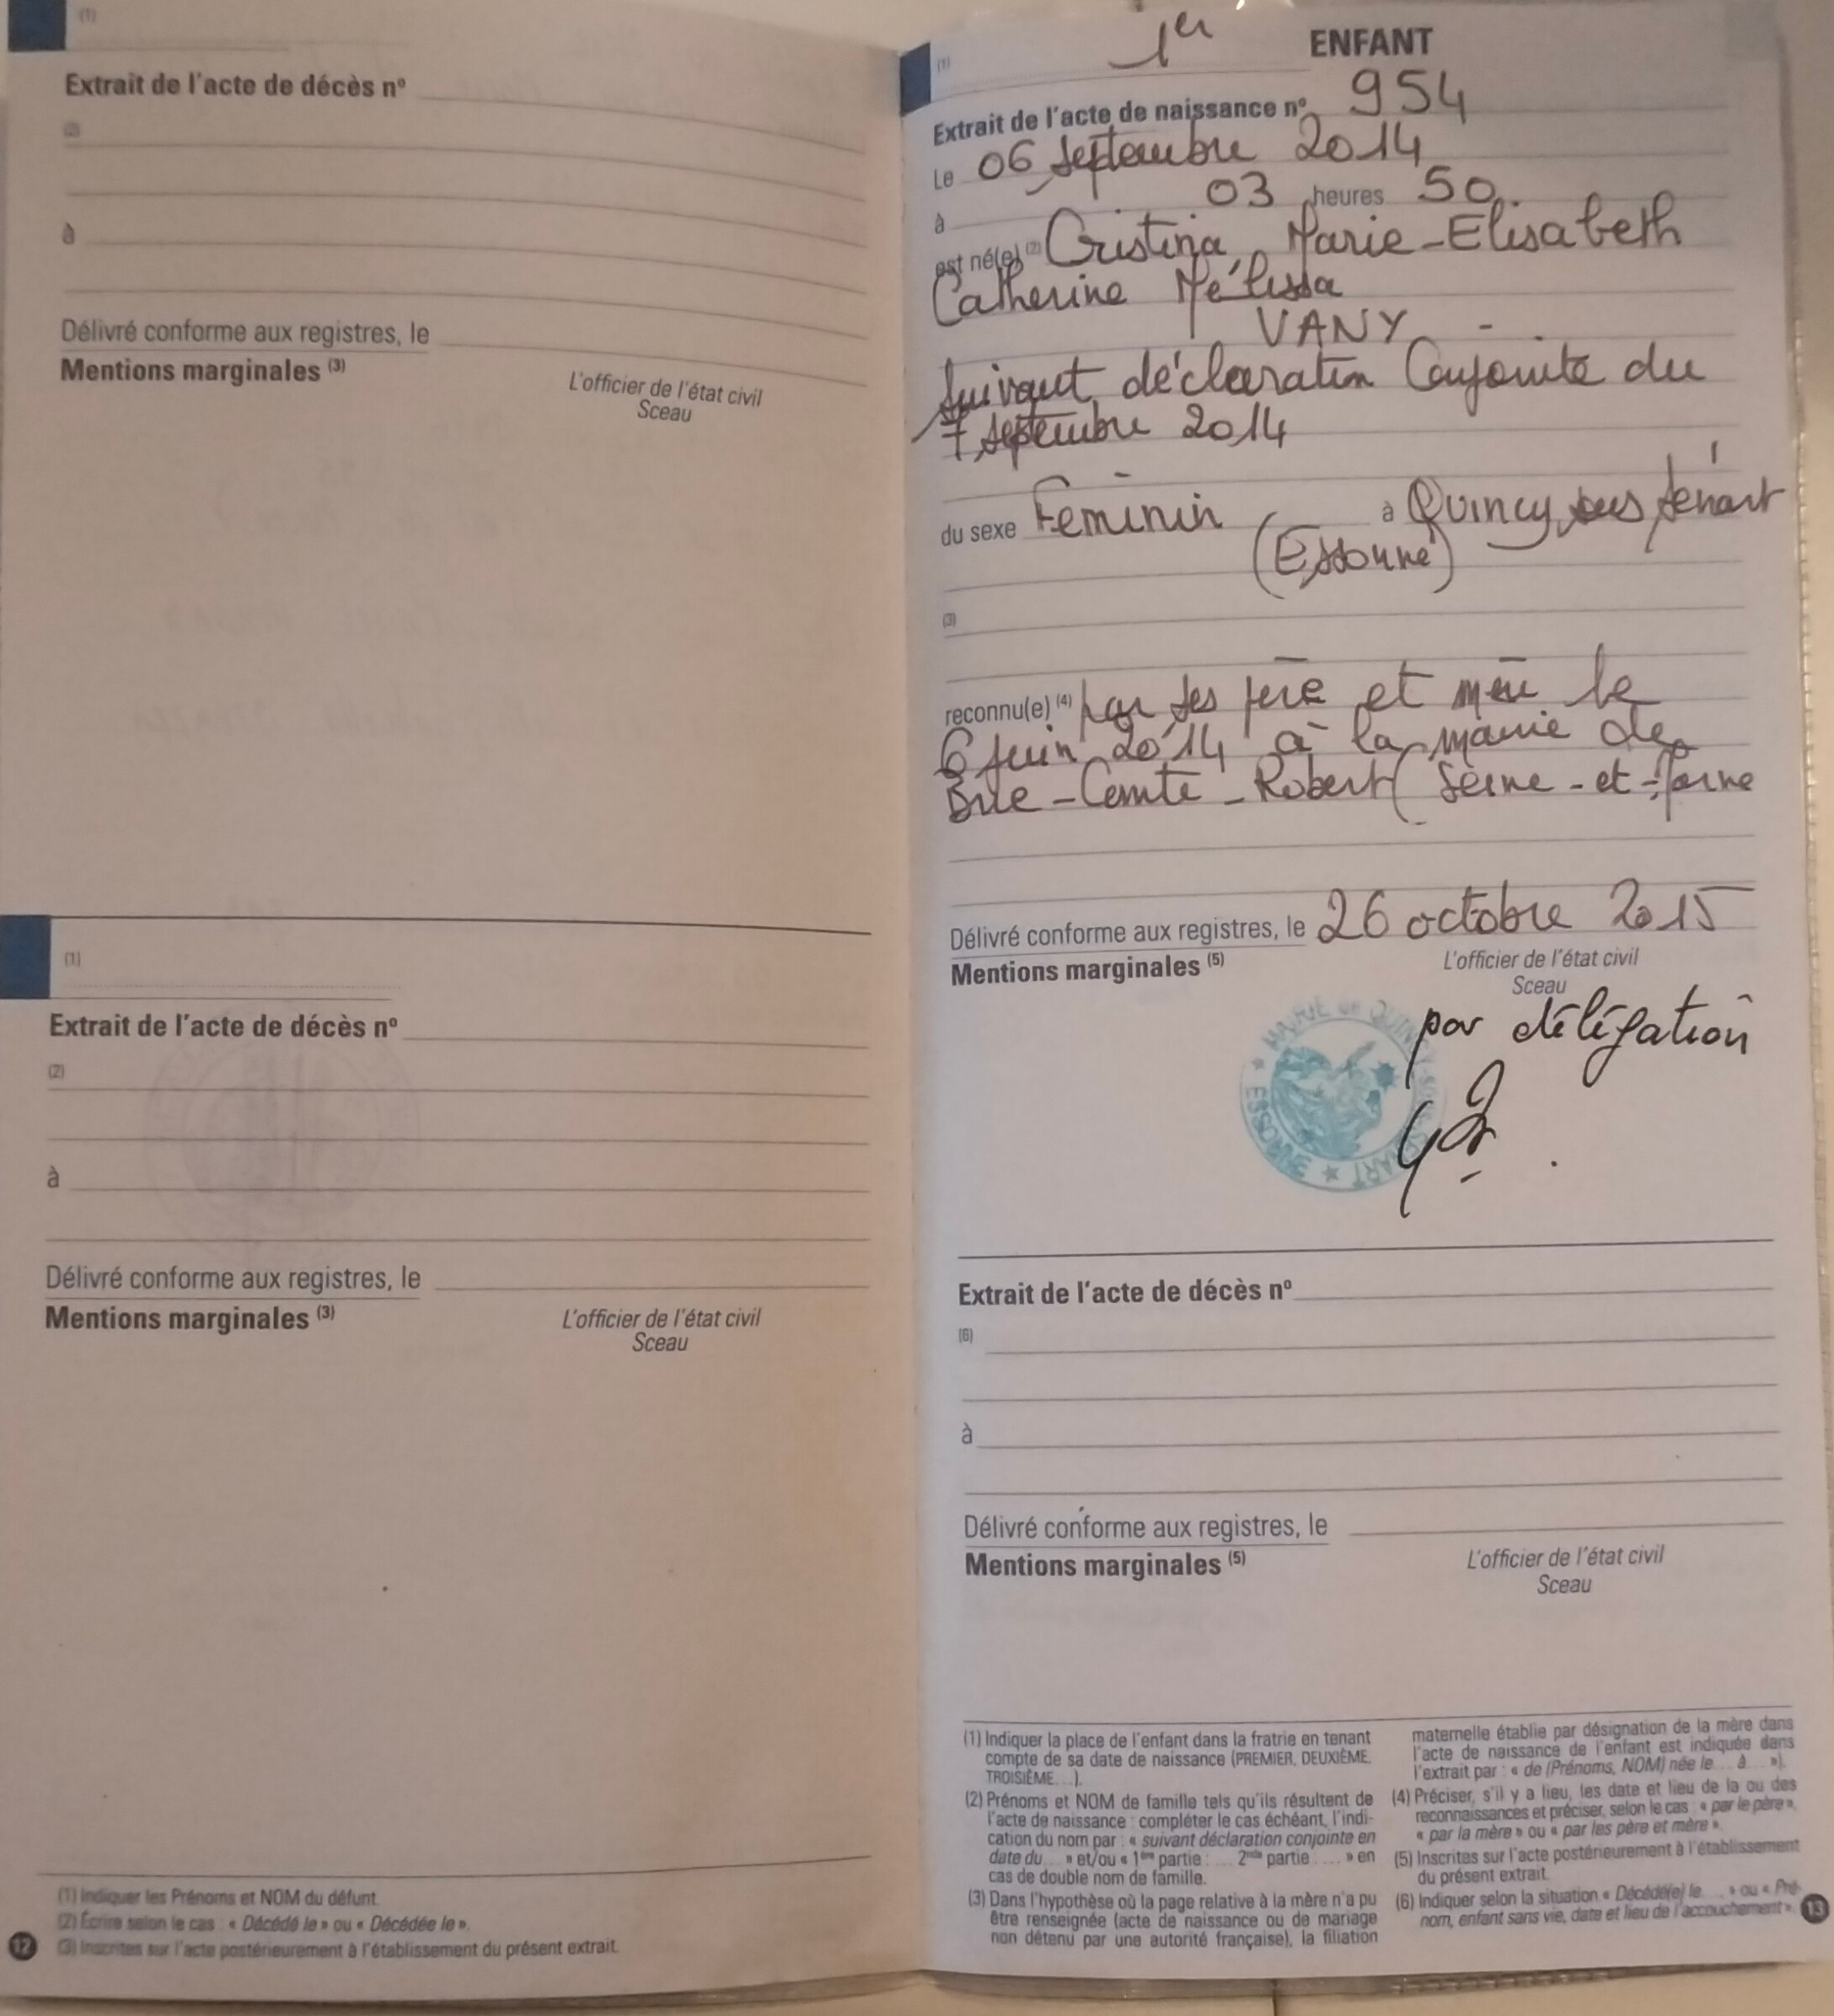 (1)
Extrait de l'acte de décès nº
(2)
à
Délivré conforme aux registres, le
Mentions marginales (3)
L'officier de l'état civil
Sceau
(1)
Extrait de l'acte de décès nº
(2)
à
Délivré conforme aux registres, le
Mentions marginales (3)
L'officier de l'état civil
Sceau
(1) Indiquer les Prénoms et NOM du défunt.
(2) Écrire selon le cas : « Décédé le » ou « Décédée le ».
(3) Inscrites sur l'acte postérieurement à l'établissement du présent extrait.
12
(1) 1er ENFANT
Extrait de l'acte de naissance nº 954
Le 06 septembre 2014
à 03 heures 50
est né(e) (2) Cristina, Marie-Elisabeth
Catherine Mélissa
VANY -
suivant déclaration Conjointe du
7 septembre 2014
du sexe Féminin à Quincy sous Sénart
(Essonne)
(3)
reconnu(e) (4) par ses père et mère le
6 juin 2014 à la mairie de
Brie-Comte-Robert (Seine-et-Marne
Délivré conforme aux registres, le 26 octobre 2015
Mentions marginales (5)
L'officier de l'état civil
Sceau
par délégation
MAIRIE de QUINCY-SOUS-SENART
★ ESSONNE ★
Extrait de l'acte de décès nº
(6)
à
Délivré conforme aux registres, le
Mentions marginales (5)
L'officier de l'état civil
Sceau
(1) Indiquer la place de l'enfant dans la fratrie en tenant
compte de sa date de naissance (PREMIER, DEUXIÈME,
TROISIÈME...).
(2) Prénoms et NOM de famille tels qu'ils résultent de
l'acte de naissance : compléter le cas échéant, l'indi-
cation du nom par : « suivant déclaration conjointe en
date du... » et/ou « 1ère partie : .... 2nde partie .... » en
cas de double nom de famille.
(3) Dans l'hypothèse où la page relative à la mère n'a pu
être renseignée (acte de naissance ou de mariage
non détenu par une autorité française), la filiation
maternelle établie par désignation de la mère dans
l'acte de naissance de l'enfant est indiquée dans
l'extrait par : « de (Prénoms, NOM) née le... à... »).
(4) Préciser, s'il y a lieu, les date et lieu de la ou des
reconnaissances et préciser, selon le cas : « par le père »,
« par la mère » ou « par les père et mère ».
(5) Inscrites sur l'acte postérieurement à l'établissement
du présent extrait.
(6) Indiquer selon la situation « Décédé(e) le.... » ou « Pré-
nom, enfant sans vie, date et lieu de l'accouchement ».
13